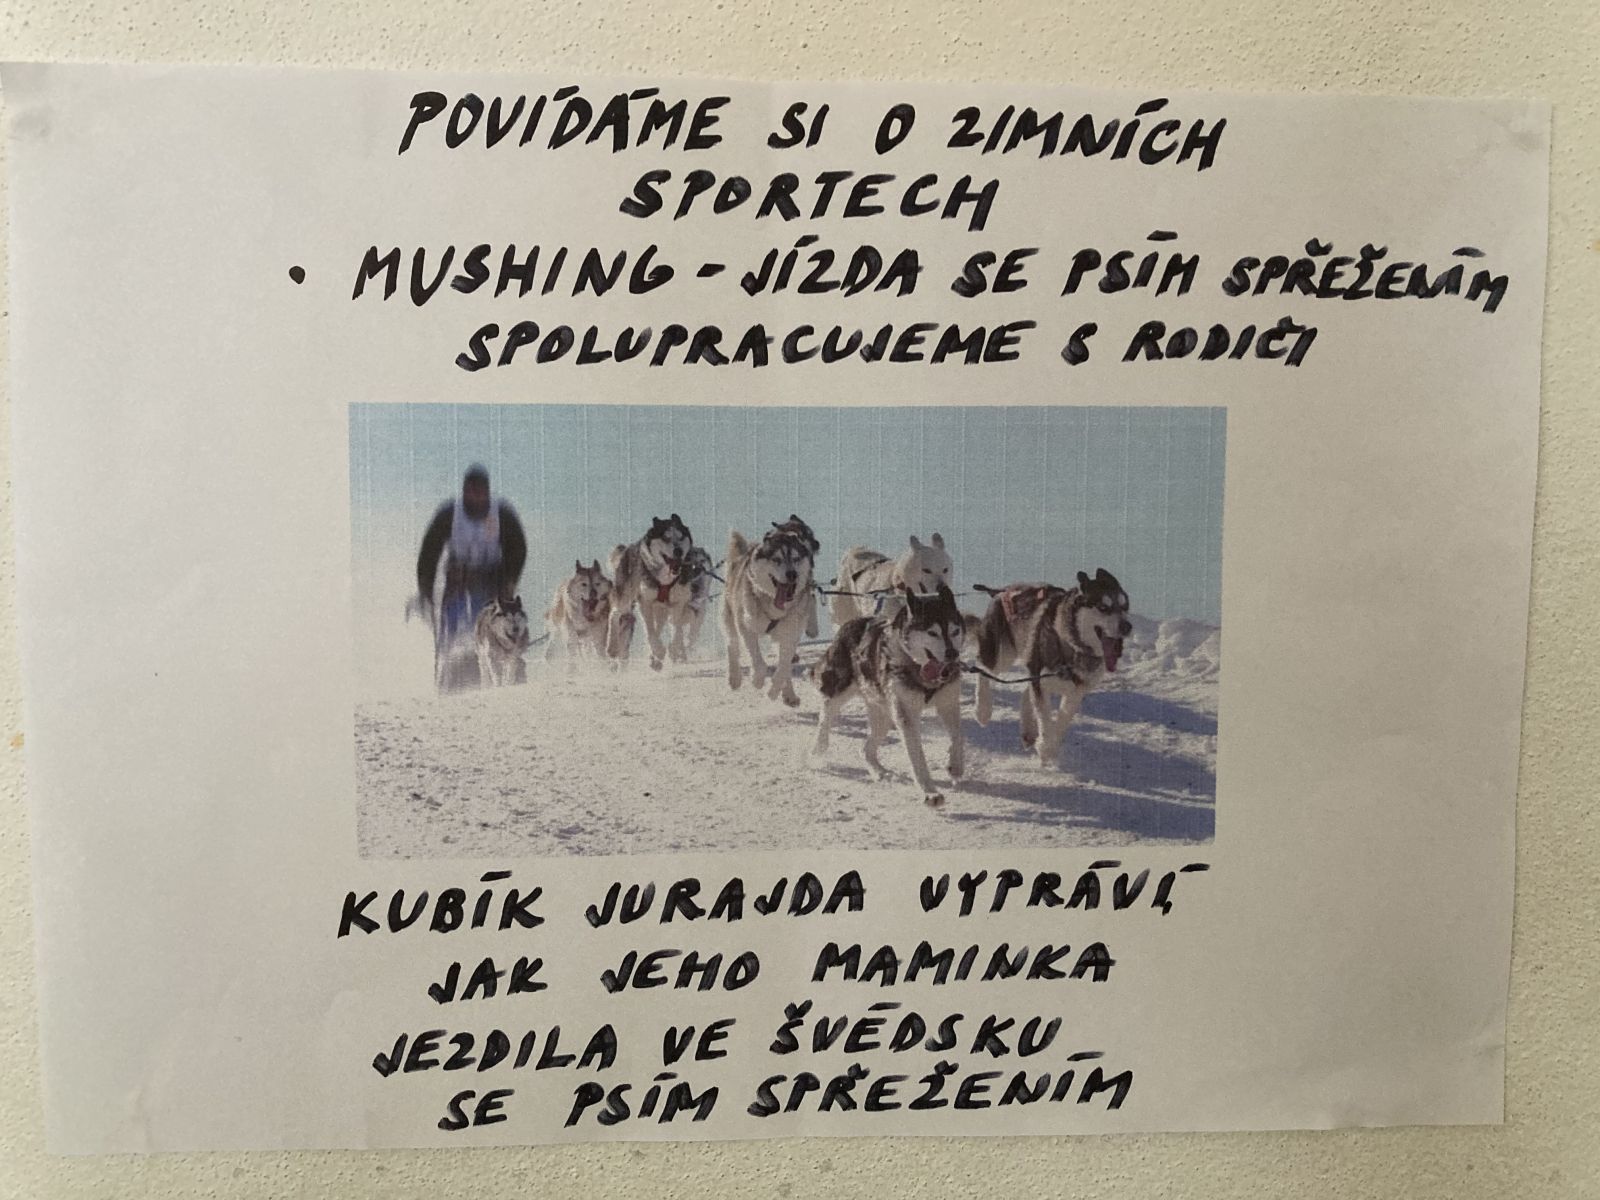 POVÍDÁME SI O ZIMNÍCH
SPORTECH
• MUSHING - JÍZDA SE PSÍM SPŘEŽENÍM
SPOLUPRACUJEME S RODIČI
KUBÍK JURAJDA VYPRÁVÍ,
JAK JEHO MAMINKA
JEZDILA VE ŠVÉDSKU
SE PSÍM SPŘEŽENÍM